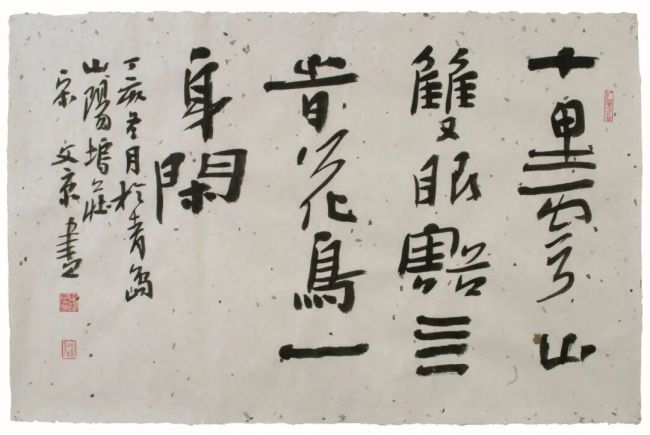 十里雲山
雙眼豁三
春花鳥一
身閑
丁亥冬月於青島
山陽塢莊
宋文京書